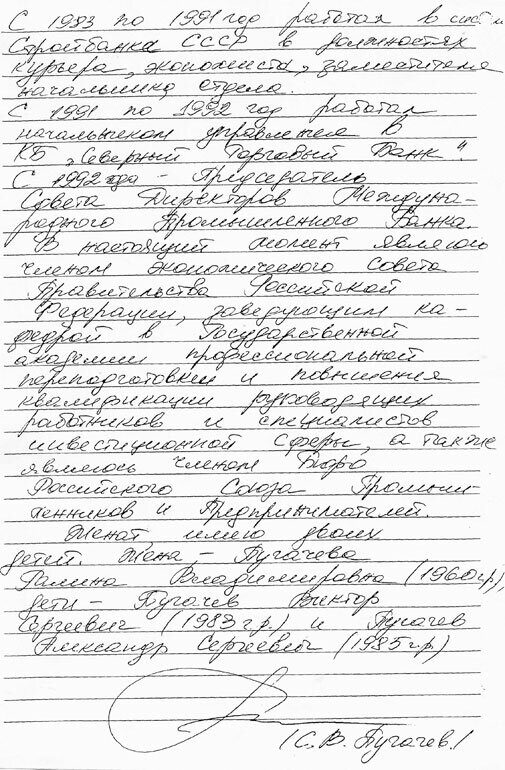 С 1983 по 1991 год работал в
Стройбанка СССР в должностях
курьера, экономиста, заместителя
начальника отдела.
С 1991 по 1992 год работал
начальником управления в
КБ „Северный Торговый Банк".
С 1992 года - Председатель
Совета Директоров Междуна-
родного Промышленного Банка.
В настоящий момент являюсь
членом экономического совета
Правительства Российской
Федерации, заведующим ка-
федрой в Государственной
академии профессиональной
переподготовки и повышения
квалификации руководящих
работников и специалистов
инвестиционной сферы, а также
являюсь членом Бюро
Российского Союза Промыш-
ленников и Предпринимателей.
Женат, имею двоих
детей. Жена - Пугачева
Галина Владимировна (1960 г.р.),
дети - Пугачев Виктор
Сергеевич (1983 г.р.) и Пугачев
Александр Сергеевич (1985 г.р.)
/С. В. Пугачев./